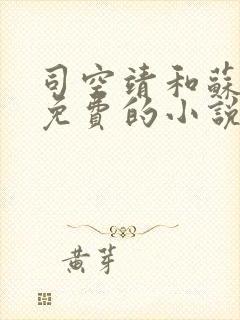 司空靖和蘇
免費的小說
黃芽